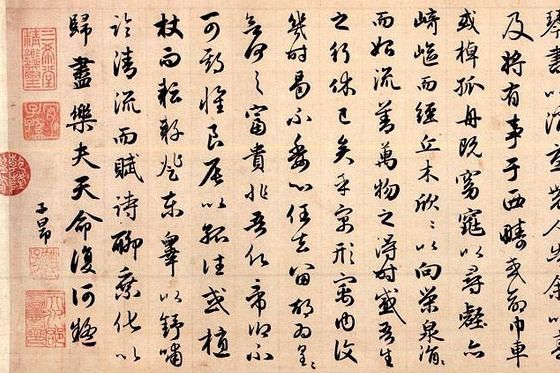 琴書以消憂農人告余以春
及將有事于西疇或命巾車
或棹孤舟既窈窕以尋壑亦
崎嶇而經丘木欣〻以向榮泉涓〻
而始流善萬物之得時感吾生
之行休已矣乎寓形寓内復
幾時曷不委心任去留胡為皇〻
欲何之富貴非吾願帝鄉不
可期懷良辰以孤往或植
杖而耘耔登東皋以舒嘯
臨清流而賦詩聊乘化以
歸盡樂夫天命復何疑
子昂
三希堂精鑑璽
宜子孫